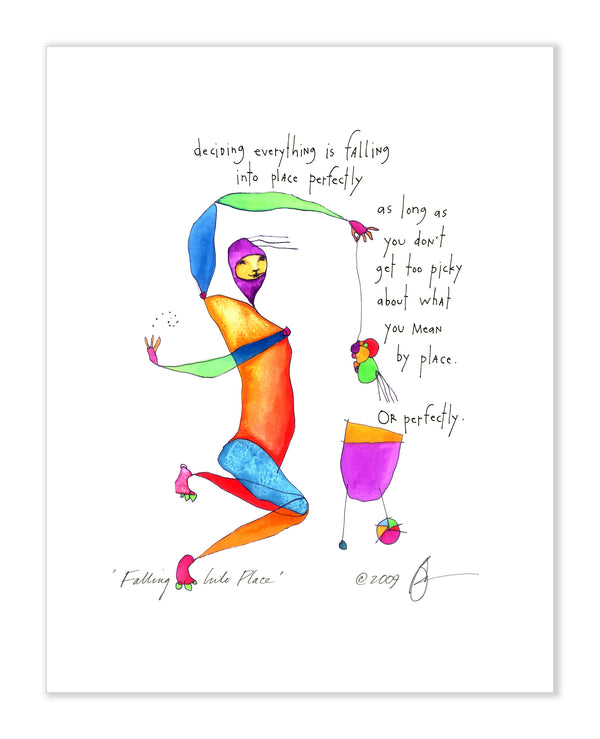 deciding everything is falling
into place perfectly
as long as
you don't
get too picky
about what
you mean
by place.
Or perfectly.
"Falling Into Place"
©2009